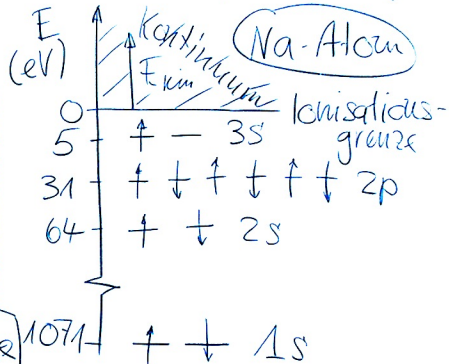 E
(eV)
Kontinuum
Ekin
Na-Atom
0
Ionisations-
grenze
5
3s
31
2p
64
2s
1071
1s